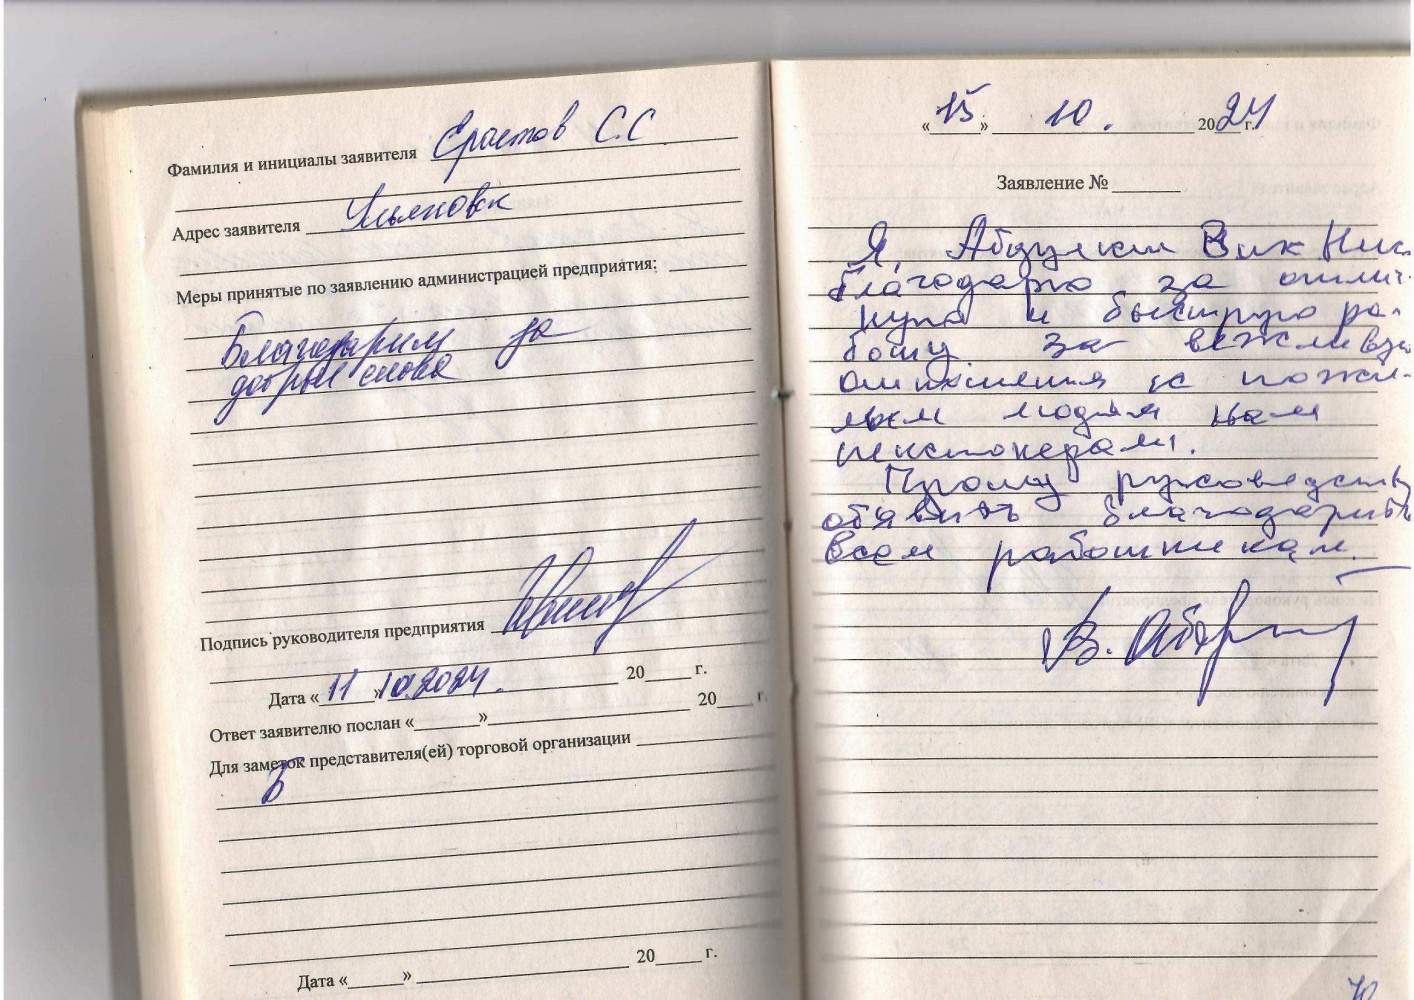 Фамилия и инициалы заявителя Ерастов С.С
Адрес заявителя Ульяновск
Меры принятые по заявлению администрацией предприятия:
Благодарим за
добрые слова
Подпись руководителя предприятия
Дата « 11 » 10.2024. 20 г.
Ответ заявителю послан « » 20 г.
Для заметок представителя(ей) торговой организации
Б
Дата « » 20 г.
« 15 » 10. 2024 г.
Заявление №
Я, Абдулкин Вик Ник
благодарю за отлич-
ную и быструю ра-
боту за вежливую
отношения к пожи-
лым людям нам
пенсионерам.
Прошу руководств
обявить благодарность
всем работникам.
В.